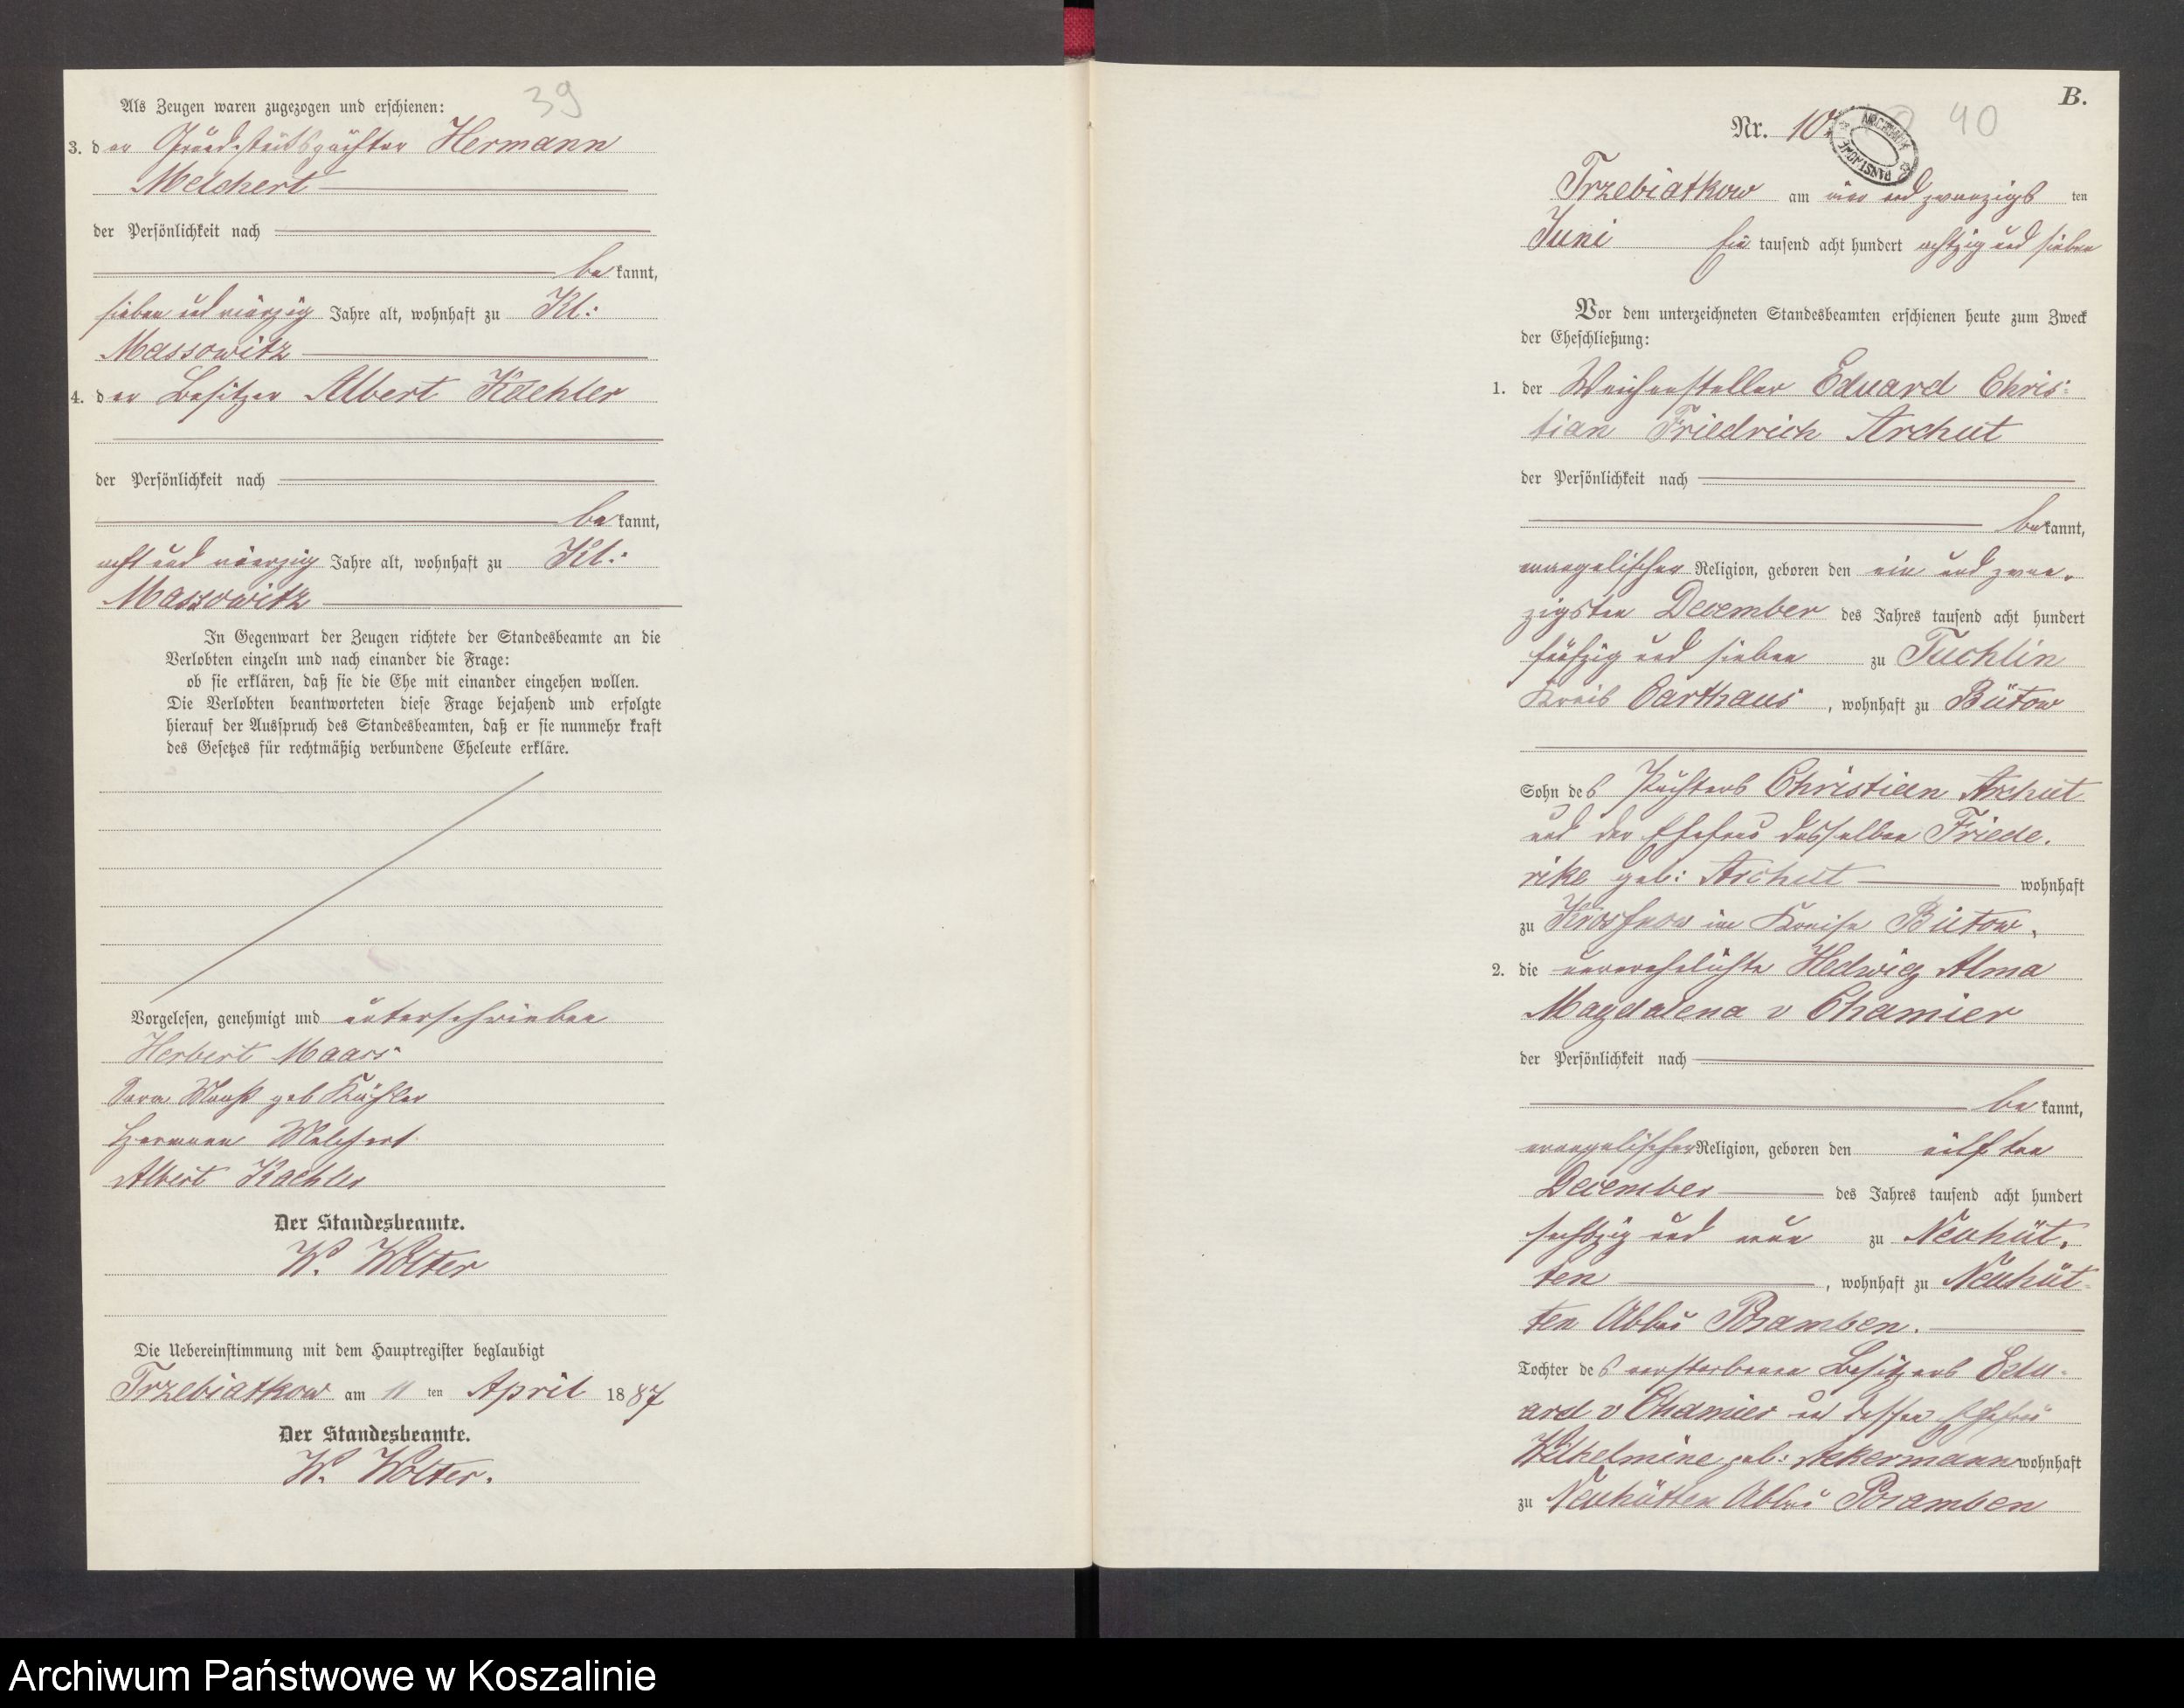 39
Als Zeugen waren zugezogen und erschienen:
3. der Grundstückspächter Hermann
Melchert
der Persönlichkeit nach
be kannt,
sieben und vierzig Jahre alt, wohnhaft zu Kl:
Massowitz
4. der Besitzer Albert Koehler
der Persönlichkeit nach
be kannt,
acht und vierzig Jahre alt, wohnhaft zu Kl:
Massowitz
In Gegenwart der Zeugen richtete der Standesbeamte an die
Verlobten einzeln und nach einander die Frage:
ob sie erklären, daß sie die Ehe mit einander eingehen wollen.
Die Verlobten beantworteten diese Frage bejahend und erfolgte
hierauf der Ausspruch des Standesbeamten, daß er sie nunmehr kraft
des Gesetzes für rechtmäßig verbundene Eheleute erkläre.
Vorgelesen, genehmigt und unterschrieben
Herbert Maass
geb
Hermann Melchert
Albert Kaehler
Der Standesbeamte.
W. Wolter
Die Uebereinstimmung mit dem Hauptregister beglaubigt
Trzebiatkow am 11 ten April 1887
Der Standesbeamte.
W. Wolter.
B.
40
Nr. 10.
Trzebiatkow am vier und zwanzigs ten
Juni Ein tausend acht hundert achtzig und sieben
Vor dem unterzeichneten Standesbeamten erschienen heute zum Zweck
der Eheschließung:
1. der Weichensteller Eduard Chris-
tian Friedrich Archut
der Persönlichkeit nach
be kannt,
evangelischer Religion, geboren den ein und zwan-
zigsten December des Jahres tausend acht hundert
fünfzig und sieben zu Tuchlin
Kreis Carthaus, wohnhaft zu Bütow
Sohn des Pächters Christian Archut
und der Ehefrau desselben Friede-
rike geb: Archut wohnhaft
zu Krosnow im Kreise Bütow,
2. die unverehelichte Hedwig Alma
Magdalena v Chamier
der Persönlichkeit nach
be kannt,
evangelischer Religion, geboren den eilften
December des Jahres tausend acht hundert
sechszig und neun zu Neuhüt-
ten, wohnhaft zu Neuhüt-
ten Abbau Pramben.
Tochter des verstorbenen Besitzers Edu-
ard v Chamier und dessen Ehefrau
Wilhelmine geb: Akkermann wohnhaft
zu Neuhütten Abbau Pramben
Archiwum Państwowe w Koszalinie